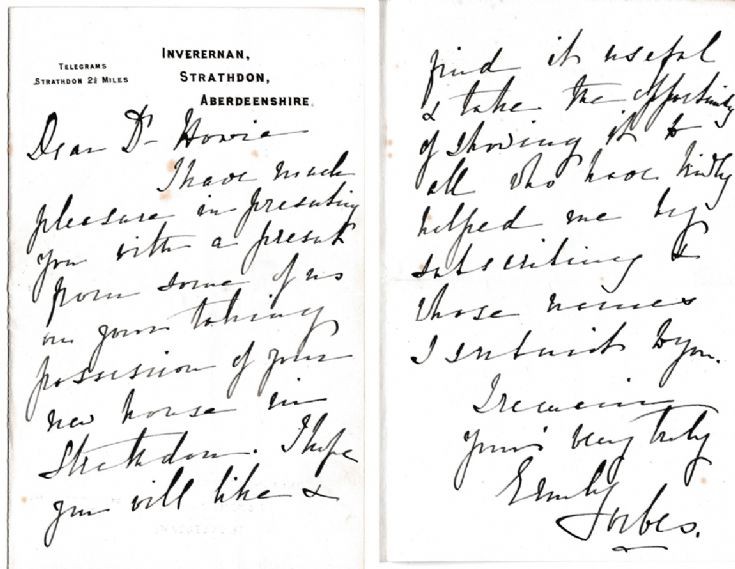 TELEGRAMS
STRATHDON 2½ MILES
INVERERNAN,
STRATHDON,
ABERDEENSHIRE.
Dear Dr Howie
I have much
pleasure in presenting
you with a present
from some of us
on your taking
possession of your
new house in
Strathdon. I hope
you will like &
find it useful
& take the opportunity
of showing it to
all who have kindly
helped me by
subscribing &
whose names
I submit to you.
I remain
yours very truly
Emily
Forbes.